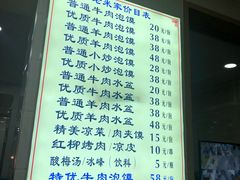 老米家价目表
普通牛肉泡馍 20元/份
优质牛肉泡馍 38元/份
普通羊肉泡馍 38元/份
优质羊肉泡馍 48元/份
普通小炒泡馍 28元/份
优质小炒泡馍 38元/份
普通牛肉水盆 28元/份
优质牛肉水盆 38元/份
普通羊肉水盆 38元/份
优质羊肉水盆 48元/份
精美凉菜/肉夹馍 15元/份
红柳烤肉/凉皮 10元/份
酸梅汤/冰峰(饮料) 5元/瓶
特优牛肉泡馍 58元/份